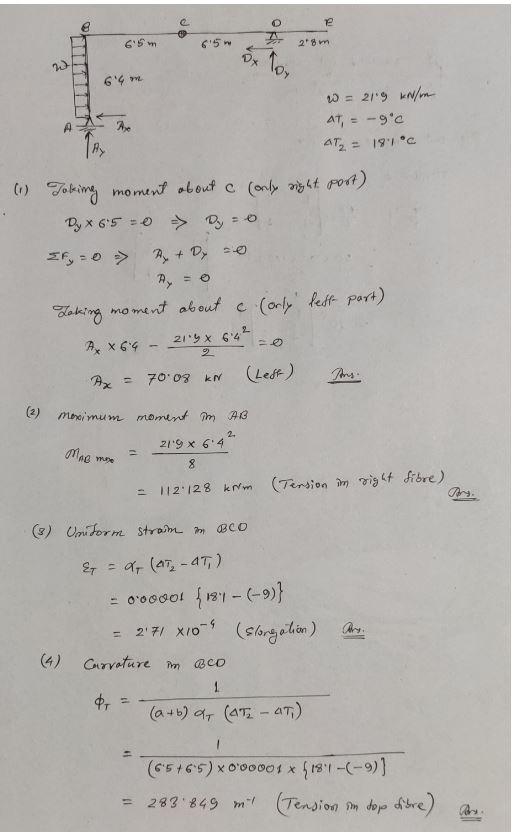 B C D E
6.5m 6.5m 2.8m
Dx Dy
w
6.4m
W = 21.9 kN/m
A Ax
ΔT₁ = -9°C
Ay
ΔT₂ = 18.1°C
(1) Taking moment about C (only right part)
Dy × 6.5 = 0 ⇒ Dy = 0
ΣFy = 0 ⇒ Ay + Dy = 0
Ay = 0
Taking moment about C (only left part)
Ax × 6.4 - 21.9 × 6.4² / 2 = 0
Ax = 70.08 kN (Left) Ans.
(2) maximum moment in AB
MAB max = 21.9 × 6.4² / 8
= 112.128 kNm (Tension in right fibre) Ans.
(3) Uniform strain in BCD
εT = αT (ΔT₂ - ΔT₁)
= 0.00001 {18.1 - (-9)}
= 2.71 × 10⁻⁴ (Elongation) Ans.
(4) Curvature in BCD
ϕT = 1 / (a+b) αT (ΔT₂ - ΔT₁)
= 1 / (6.5+6.5) × 0.00001 × {18.1 - (-9)}
= 283.849 m⁻¹ (Tension in top fibre) Ans.